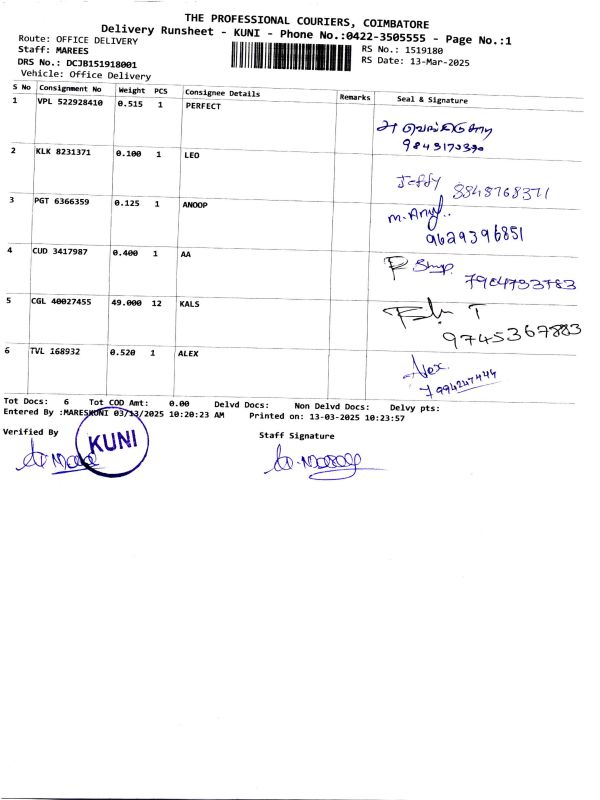 THE PROFESSIONAL COURIERS, COIMBATORE
Delivery Runsheet - KUNI - Phone No.:0422-3505555 - Page No.:1
Route: OFFICE DELIVERY
RS No.: 1519180
Staff: MAREES
RS Date: 13-Mar-2025
DRS No.: DCJB151918001
Vehicle: Office Delivery
S No Consignment No Weight PCS Consignee Details Remarks Seal & Signature
1 VPL 522928410 0.515 1 PERFECT
2 KLK 8231371 0.100 1 LEO
3 PGT 6366359 0.125 1 ANOOP
9629396851
4 CUD 3417987 0.400 1 AA
5 CGL 40027455 49.000 12 KALS
9745367883
6 TVL 168932 0.520 1 ALEX
Alex
7994247444
Tot Docs: 6 Tot COD Amt: 0.00 Delvd Docs: Non Delvd Docs: Delvy pts:
Entered By :MARESKUNI 03/13/2025 10:20:23 AM Printed on: 13-03-2025 10:23:57
Verified By
Staff Signature
KUNI